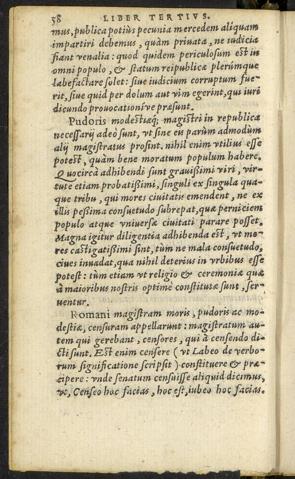 58 LIBER TERTIVS.
mus, publica potiùs pecunia mercedem aliquam
impartiri debemus, quàm priuata, ne iudicia
fiant venalia: quod quidem periculosum est in
omni populo, & statum reipublicæ plerúmque
labefactare solet: siue iudicium corruptum fue-
rit, siue quid per dolum aut vim egerint, qui iuri
dicundo prouocationíve præsunt.
Pudoris modestiæq́; magistri in republica
necessarij adeò sunt, vt sine eis parùm admodùm
alij magistratus prosint. nihil enim vtilius esse
potest, quàm bene moratum populum habere,
Quocircà adhibendi sunt grauissimi viri, vir-
tute etiam probatißimi, singuli ex singula qua-
que tribu, qui mores ciuitatis emendent, ne ex
illis peßima consuetudo subrepat, quæ perniciem
populo atque vniuersæ ciuitati parare posset.
Magna igitur diligentia adhibenda est, vt mo-
res castigatißimi sint, tùm ne mala consuetudo,
ciues inuadat, qua nihil deterius in vrbibus esse
potest: tùm etiam vt religio & ceremoniæ quæ
à maioribus nostris optimè constitutæ sunt, ser-
uentur.
Romani magistram moris, pudoris ac mo-
destiæ, censuram appellarunt: magistratum au-
tem qui gerebant, censores, qui à censendo di-
cti sunt. Est enim censere (vt Labeo de verbo-
rum significatione scripsit) constituere & præ-
cipere: vnde senatum censuisse aliquid dicimus,
vt, Censeo hoc facias, hoc est, iubeo hoc facias.